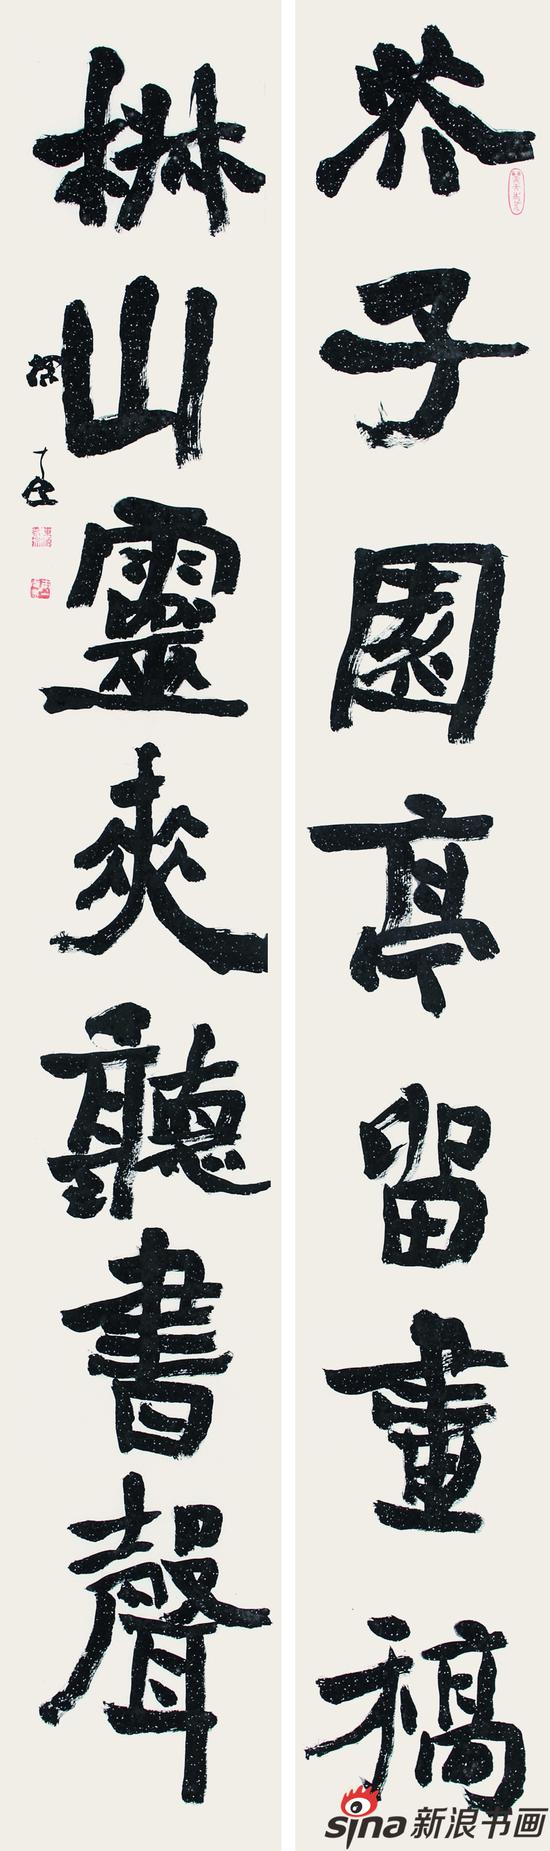 芥子園亭留畫稿
山靈爽聽書聲
sina新浪书画